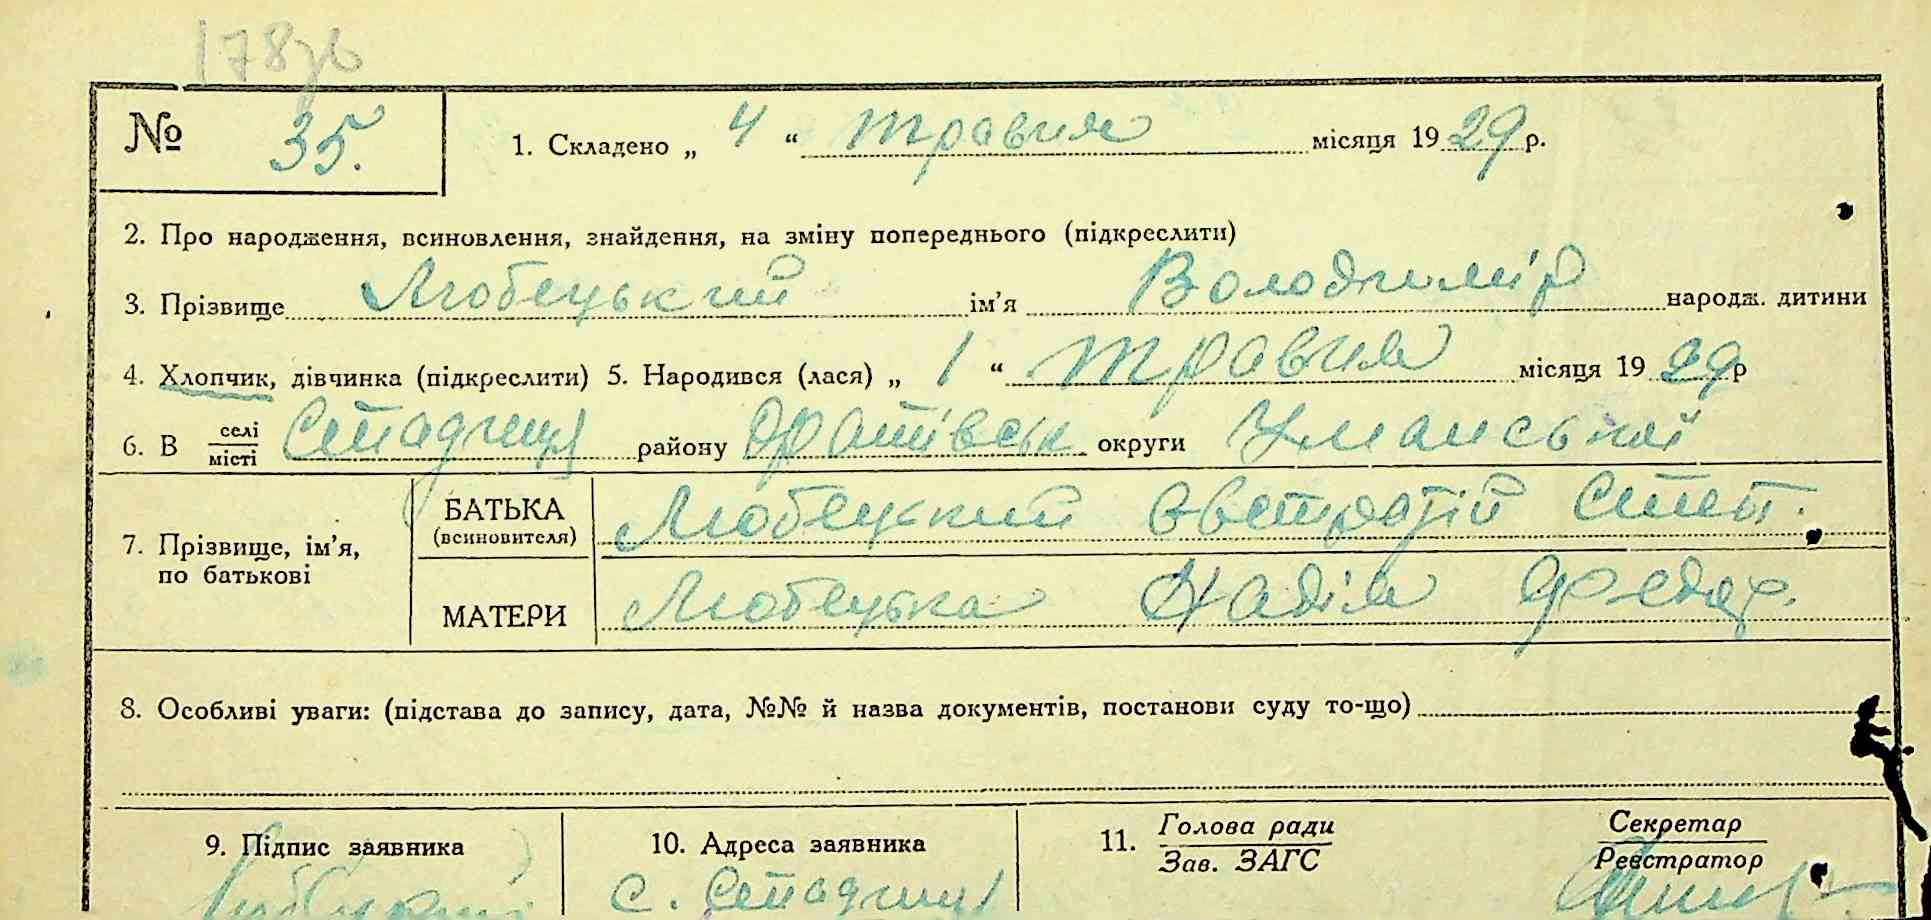 178зв
№ 35. 1. Складено „ 4 “ травня місяця 1929 р.
2. Про народження, всиновлення, знайдення, на зміну попереднього (підкреслити)
3. Прізвище Любецький ім’я Володимір народж. дитини
4. Хлопчик, дівчинка (підкреслити) 5. Народився (лася) „ 1 “ травня місяця 1929 р
6. В селі / місті Стадниця району Оратівськ округи Уманської
7. Прізвище, ім’я, по батькові
БАТЬКА (всиновителя) Любецкий Овстратій Степ.
МАТЕРИ Любецька Надія Федор.
8. Особливі уваги: (підстава до запису, дата, №№ й назва документів, постанови суду то-що)
9. Підпис заявника 10. Адреса заявника 11. Голова ради / Зав. ЗАГС Секретар / Реєстратор
Любецкий с. Стадниця